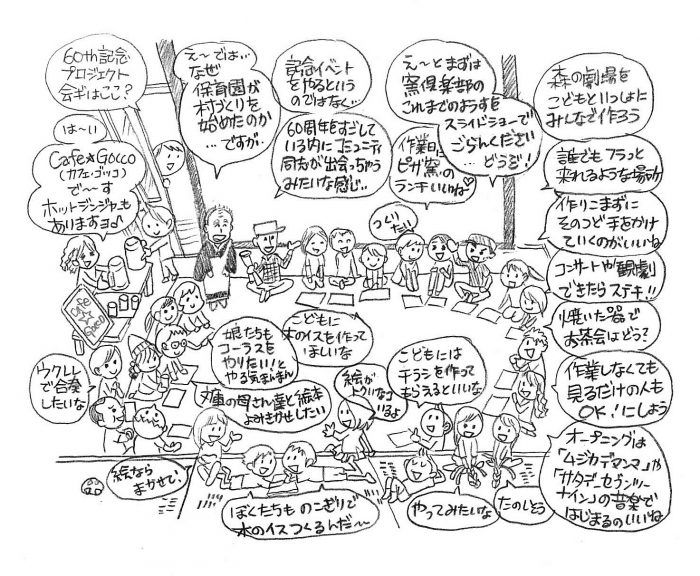 60th記念
プロジェクト
会ギはここ?
は〜い
Cafe★Gocco
(カフェ・ゴッコ)
で〜す
ホットジンジャーも
ありますヨ♪
え〜では…
なぜ
保育園が
村づくりを
始めたのか
…ですが…
記念イベント
をやるという
のではなく…
60周年をすごして
いる内にコミュニティ
同志が出会っちゃう
みたいな感じ…
え〜とまずは
窯倶楽部の
これまでのようすを
スライドショーで
ごらんください
…どうぞ!
作業日に
ピザ窯の
ランチいいね♡
つくり
たい
森の劇場を
こどもといっしょに
みんなで作ろう
誰でもフラっと
来れるような場所
作りこまずに
そのつど手をかけ
ていくのがいいね
コンサートや観劇
できたらステキ!!
焼いた器で
お茶会はどう?
作業しなくても
見るだけの人も
OK!にしよう
オープニングは
「ムジカデマンマ」や
「サタデーセブンツー
ナイン」の音楽で
はじまるのいいね
Cafe
☆
Gocco
ウクレレ
で合奏
したいな
娘たちも
コーラスを
やりたい!と
やる気まんまん
こどもに
木のイスを作って
ほしいな
文庫の母さん達と絵本
よみきかせしたい
絵が
トクイなコ
いるよ
こどもには
チラシを作って
もらえるといいな
絵なら
まかせて!
ぼくたちものこぎりで
木のイスつくるんだ〜
やってみたいな
たのしそう